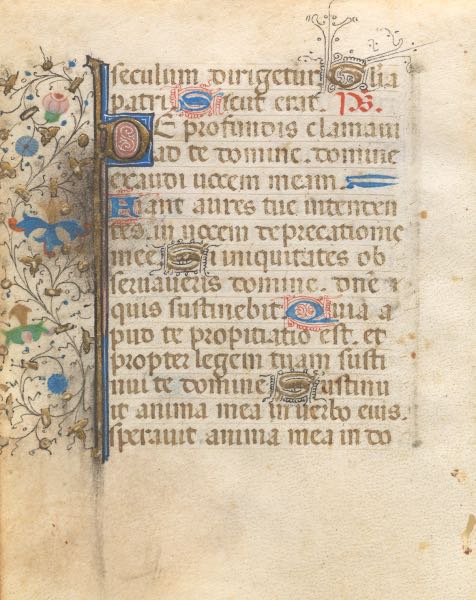 seculum dirigetur Glia
patri Sicut erat. ps.
De profundis clamaui
ad te domine. domine
exaudi uocem meam
Fiant aures tue intenden
tes. in uocem deprecationis
mee Si iniquitates ob
seruaueris domine. dn̄e
quis sustinebit Quia a
pud te propitiatio est. et
propter legem tuam susti
nui te domine Sustinu
it anima mea in uerbo eius.
sperauit anima mea in do